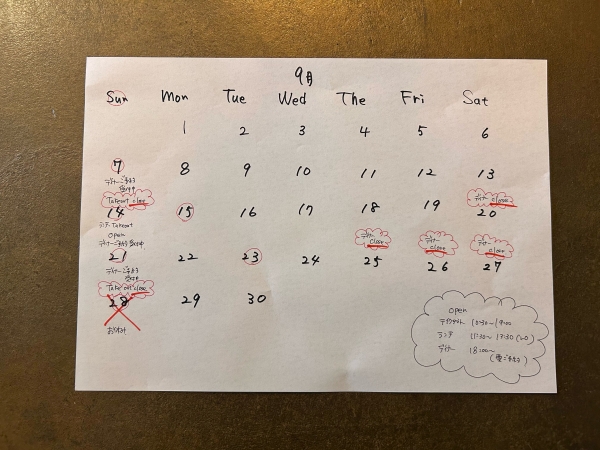 9月
Sun Mon Tue Wed The Fri Sat
1 2 3 4 5 6
7 8 9 10 11 12 13
ディナーご予約
受付中
Takeout close
ディナー close
14 15 16 17 18 19 20
ランチ Takeout
open
ディナーご予約受付中
ディナー close
ディナー close
ディナー close
21 22 23 24 25 26 27
ディナーご予約
受付中
Take out close
28 29 30
お休み
open
テイクアウト 10:30~19:00
ランチ 11:30~
ディナー 18:00~
(要ご予約)